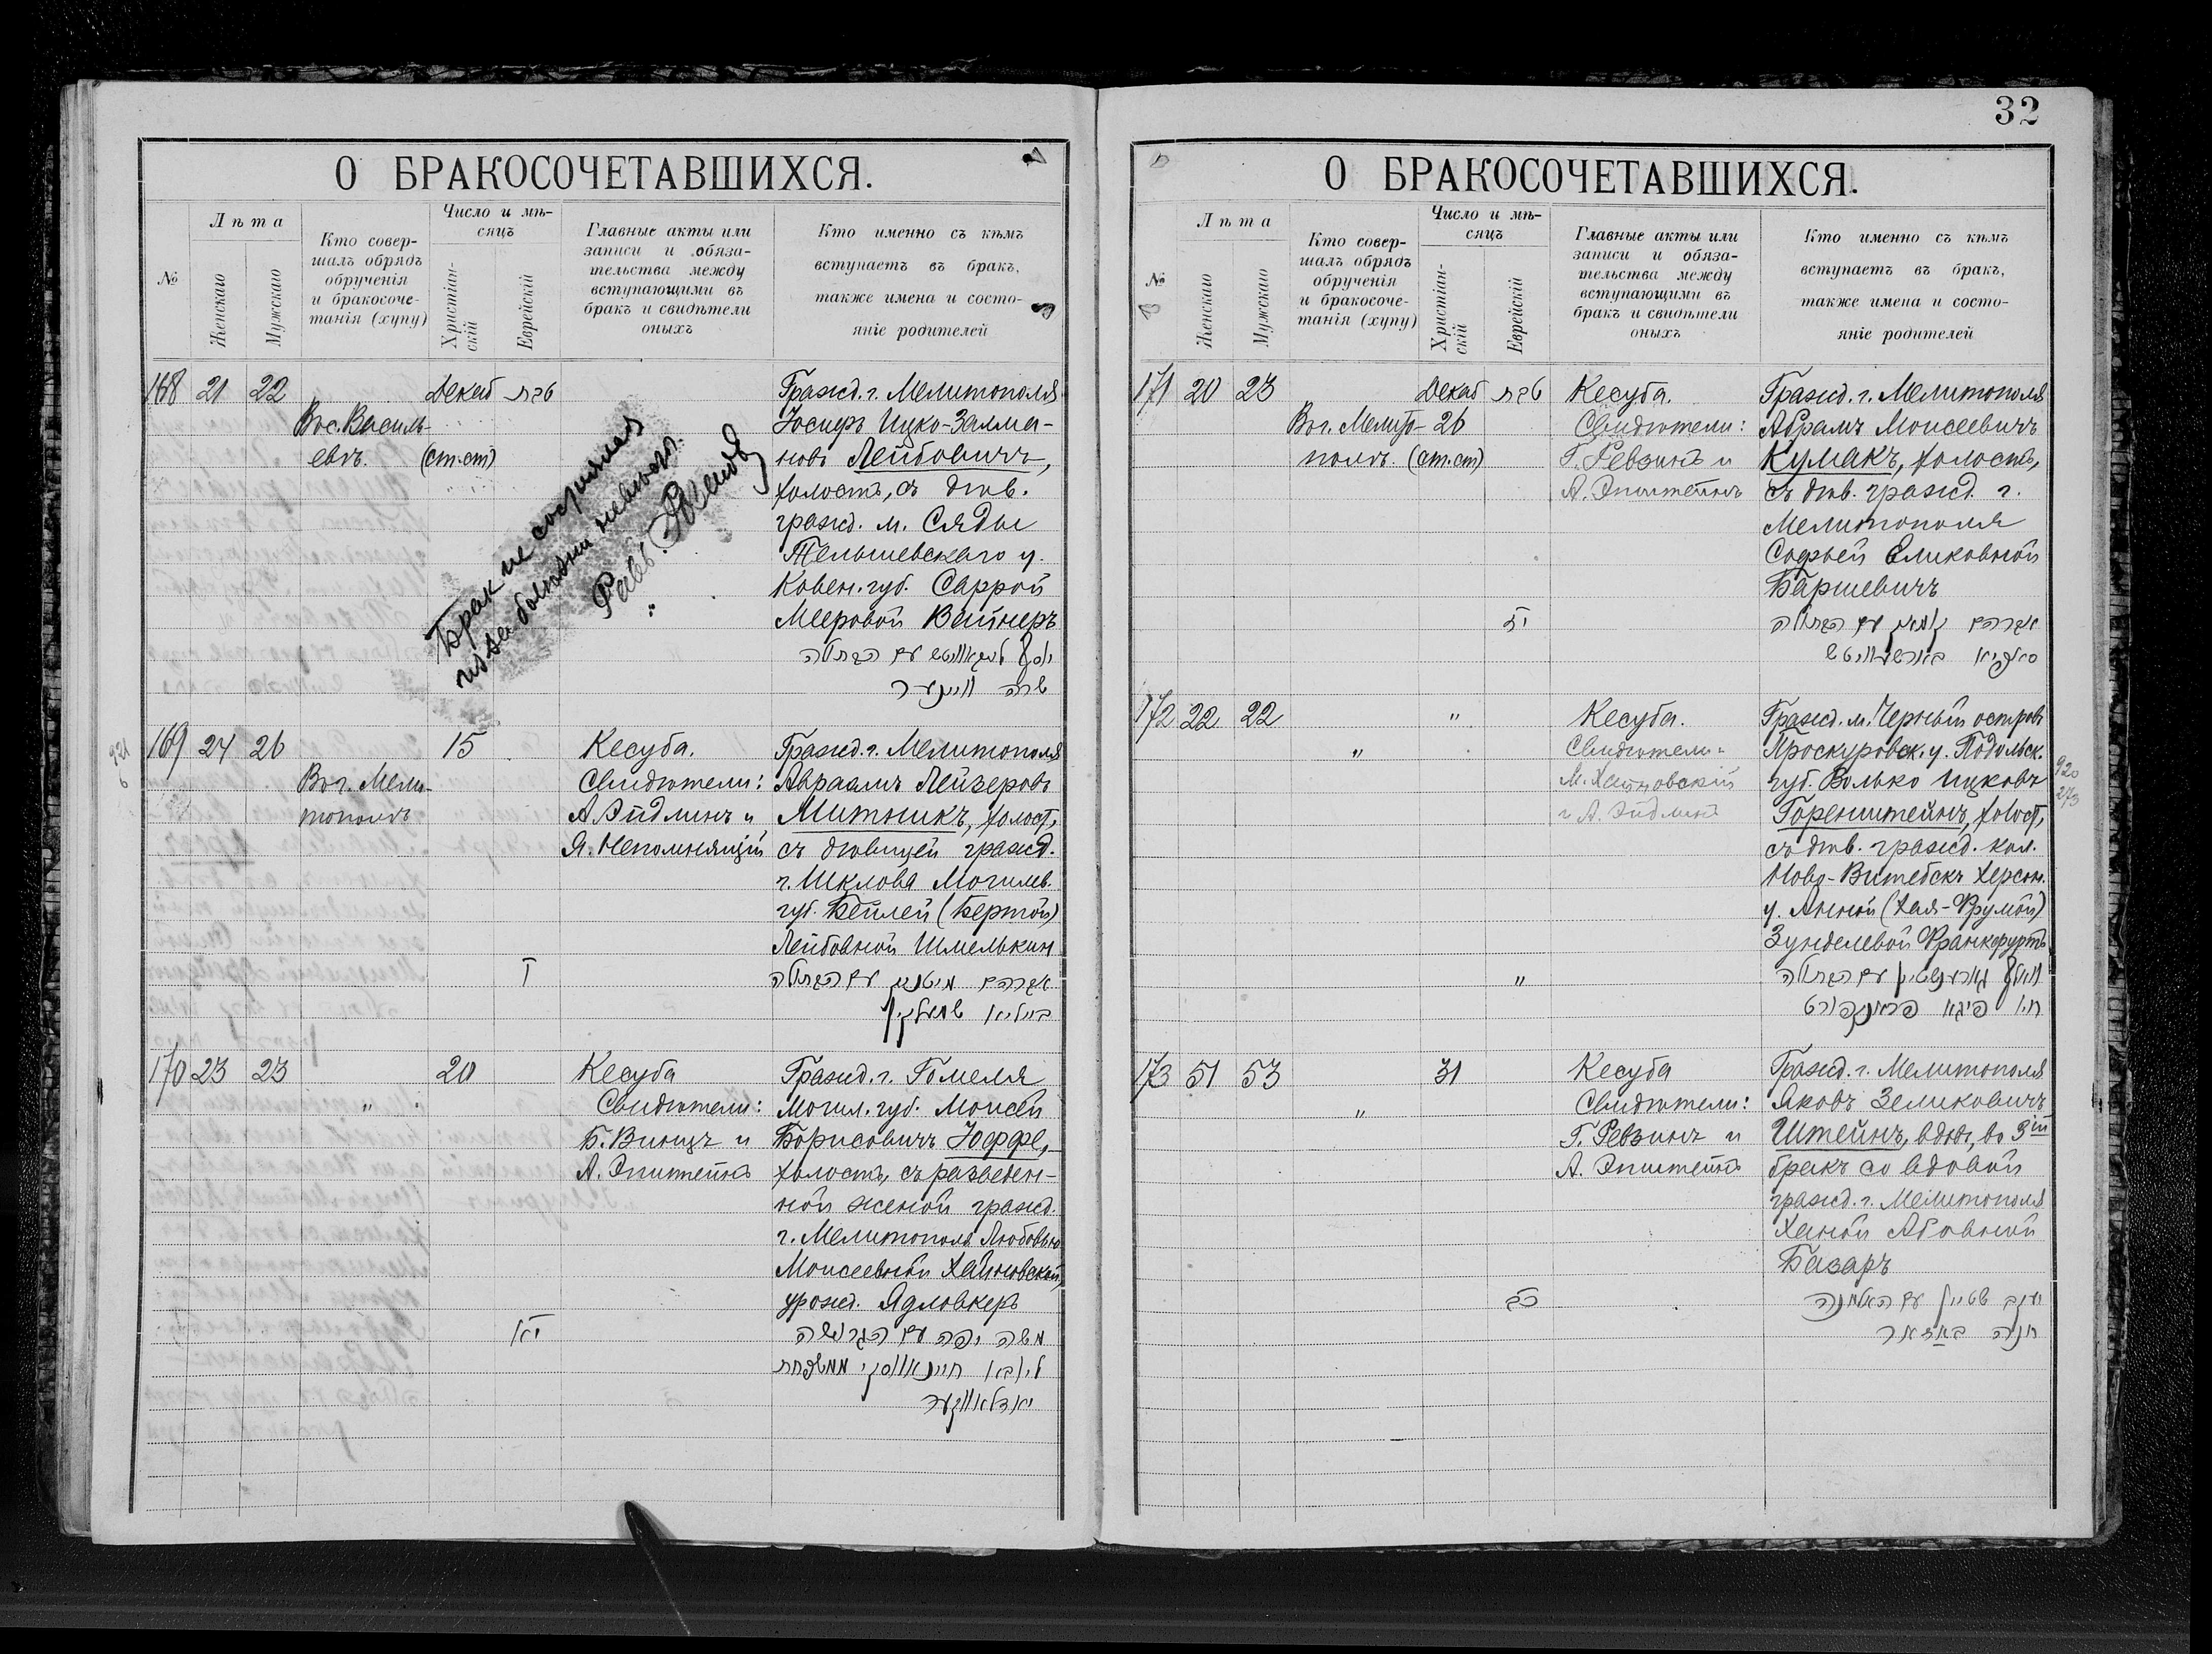 О БРАКОСОЧЕТАВШИХСЯ.
№
Лѣта
Женскаго
Мужскаго
Кто совер-
шалъ обрядъ
обрученія
и бракосоче-
танія (хупу)
Число и мѣ-
сяцъ
Христіан-
скій
Еврейскій
Главные акты или
записи и обяза-
тельства между
вступающими въ
бракъ и свидѣтели
оныхъ
Кто именно съ кѣмъ
вступаетъ въ бракъ,
также имена и состо-
яніе родителей
168 21 22
Вс. Василь-
евъ.
Декаб
(ст.ст)
טבת
Брак не состоялся
из за болѣзни невѣсты.
Равв.
Гражд. г. Мелитополя
Іосифъ Ицко-Залма-
новъ Лейбовичъ,
холостъ, съ дѣв.
гражд. м. Сяды
Тельшевскаго у.
Ковен. губ. Саррой
Мееровой Вайнеръ
יוסף לייבאוויטש עם הבתולה
שרה ווײנער
169 24 26
Въ г. Мели-
тополѣ
15
ד
Кесуба.
Свидѣтели:
А. Эйдлинъ и
Я. Непомнящій
Гражд. г. Мелитополя
Авраамъ Лейзеровъ
Митникъ, холост,
съ дѣвицей гражд.
г. Шклова Могилев.
губ. Бейлей (Бертой)
Лейбовной Шмелькин
אברהם מיטניק עם הבתולה
ביילא שמעלקין
170 23 23
"
20
יא
Кесуба
Свидѣтели:
Б. Винцъ и
А. Эпштейнъ
Гражд. г. Гомеля
Могил. губ. Моисей
Борисовичъ Іоффе,
холостъ, съ разведен-
ной женой гражд.
г. Мелитополя Любовью
Моисеевной Хайновской,
урожд. Ядловкеръ
משה יפה עם הגרושה
ליובא חיינאווסקי ממשפחת
יאדלאווקער
32
О БРАКОСОЧЕТАВШИХСЯ.
№
Лѣта
Женскаго
Мужскаго
Кто совер-
шалъ обрядъ
обрученія
и бракосоче-
танія (хупу)
Число и мѣ-
сяцъ
Христіан-
скій
Еврейскій
Главные акты или
записи и обяза-
тельства между
вступающими въ
бракъ и свидѣтели
оныхъ
Кто именно съ кѣмъ
вступаетъ въ бракъ,
также имена и состо-
яніе родителей
171 20 23
Въ г. Мелито-
полѣ.
Декаб
26
(ст.ст)
טבת
Кесуба.
Свидѣтели:
Г. Ревзинъ и
А. Эпштейнъ
Гражд. г. Мелитополя
Абрамъ Моисеевичъ
Кумакъ, холостъ,
съ дѣв. гражд. г.
Мелитополя
Софьей Еликовной
Баршевичъ
אברהם קומאק עם הבתולה
סאפיא בארשעוויטש
172 22 22
"
"
"
Кесуба.
Свидѣтели:
М. Хайновскій
и А. Эйдлинъ
Гражд. м. Черный островъ
Проскуровск. у. Подольск.
губ. Волько Ицковъ
Горенштейнъ, холост,
съ дѣв. гражд. кол.
Ново-Витебскъ Херсон.
у. Анной (Хая-Фрумой)
Зунделевой Франкфуртъ
וואלף גארענשטיין עם הבתולה
173 51 53
"
31
כב
Кесуба
Свидѣтели:
Г. Ревзинъ и
А. Эпштейнъ
Гражд. г. Мелитополя
Яковъ Зеликовичъ
Штейнъ, вдов, во 3ій
бракъ со вдовой
гражд. г. Мелитополя
Ханой Абовной
Базаръ
יעקב שטיין עם האלמנה
חנה באזאר
920
273